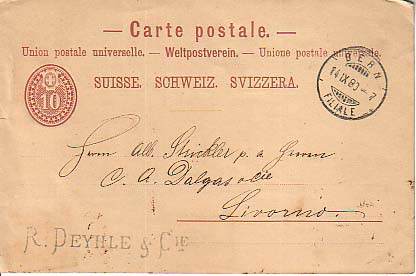 — Carte postale. —
Union postale universelle. — Weltpostverein. — Unione postale universale.
SUISSE. SCHWEIZ. SVIZZERA.
10
BERN
14 IX 80 – 7
FILIALE
Herrn Alb. Strickler p. a. Herren
C. A. Dalgas & Cie
Livorno.
R. DEYHLE & CIE